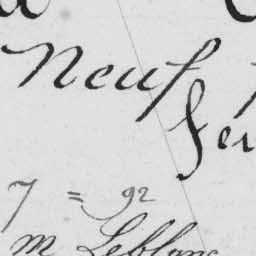 Neuf
7 = 92
M Leblanc